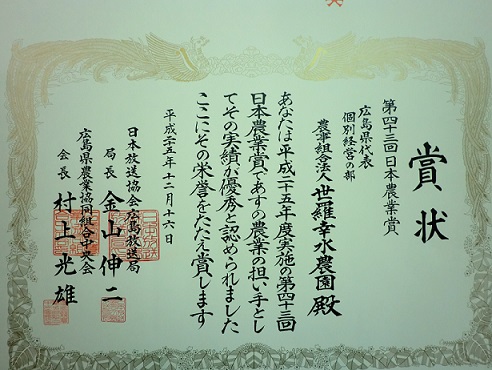 賞状
第四十三回日本農業賞
広島県代表
個別経営の部
農事組合法人 世羅幸水農園 殿
あなたは平成二十五年度実施の第四十三回
日本農業賞であすの農業の担い手とし
てその実績が優秀と認められました
ここにその栄誉をたたえ賞します
平成二十五年十二月十六日
日本放送協会広島放送局
局長 金山伸二
広島県農業協同組合中央会
会長 村上光雄